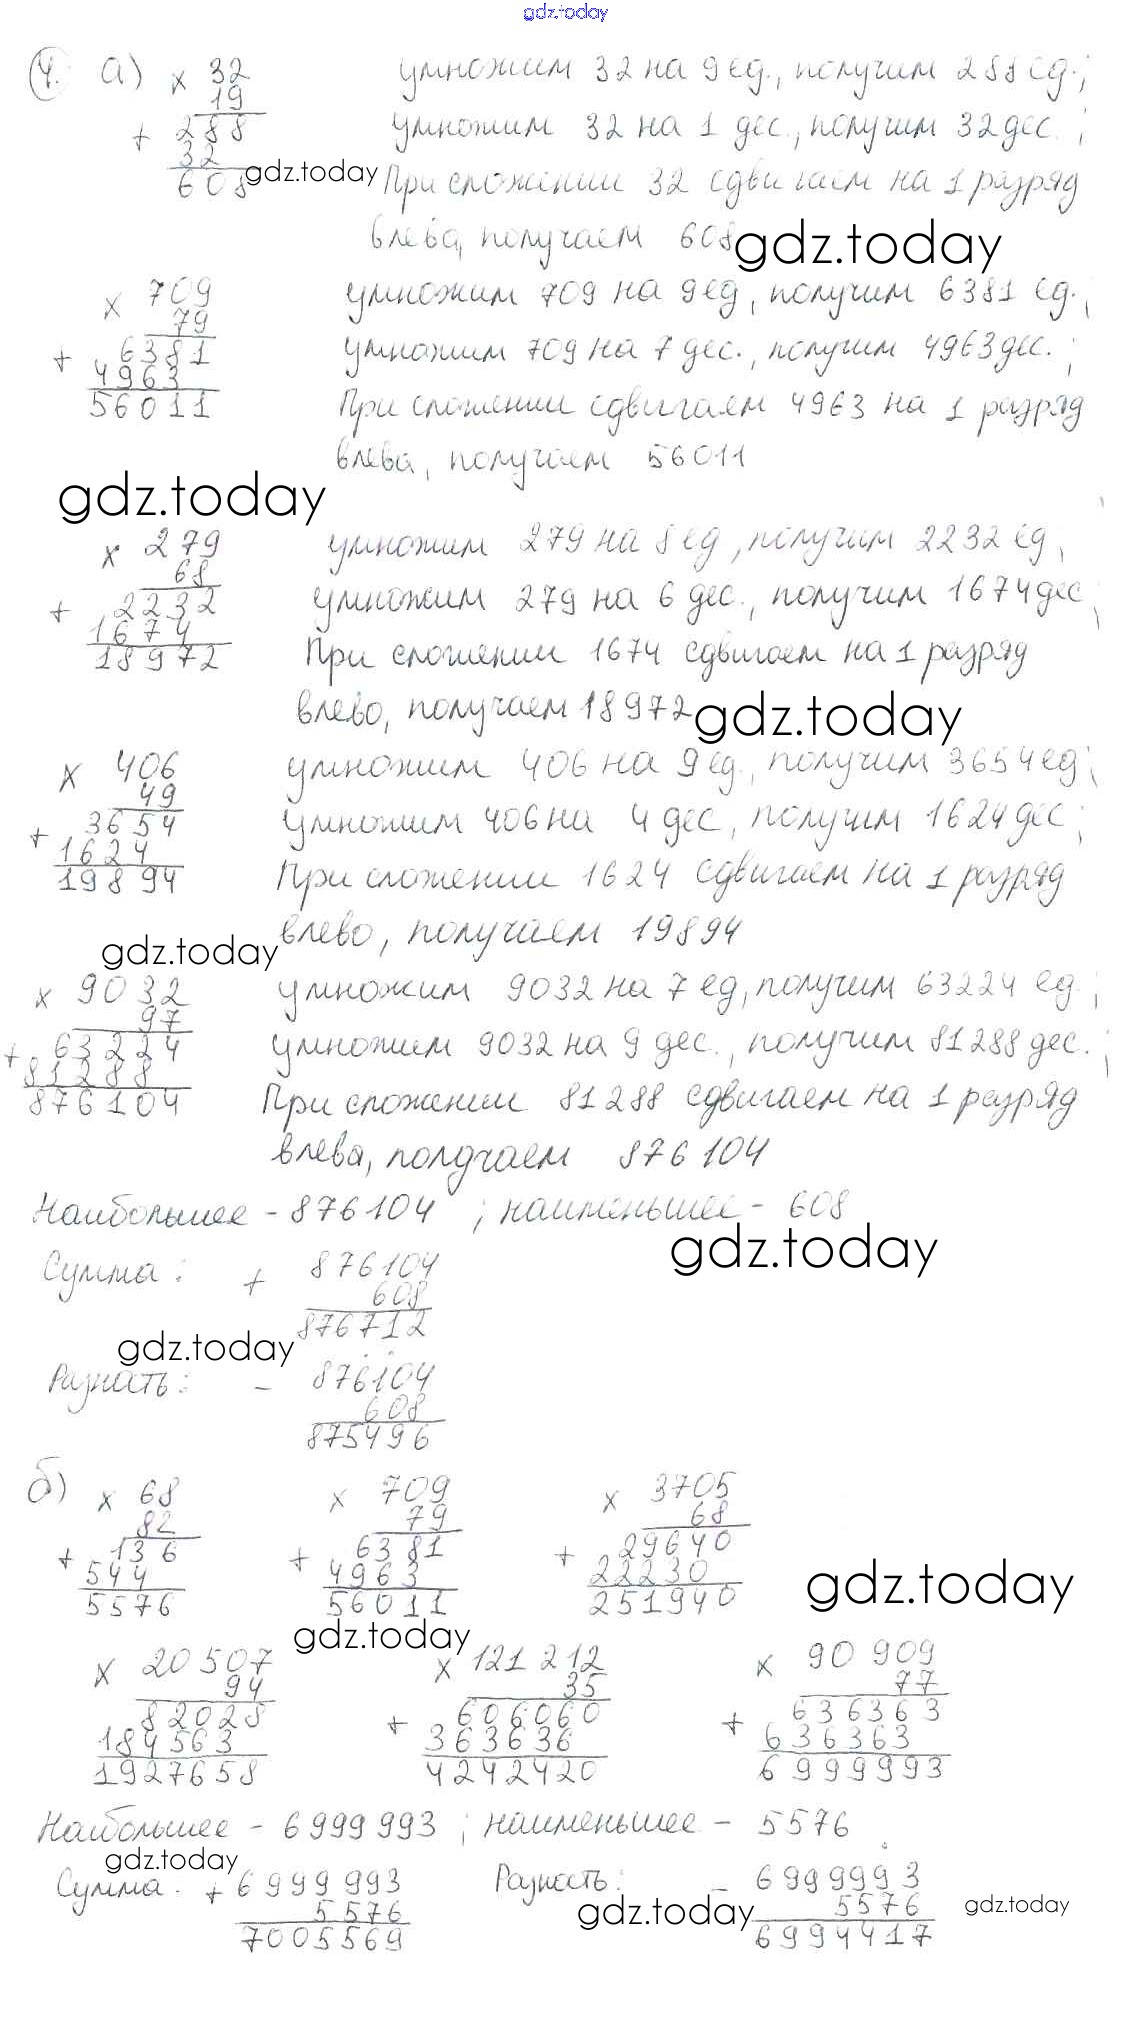 gdz.today
4. а) × 32 умножим 32 на 9 ед., получим 288 ед.;
19
+ 288 умножим 32 на 1 дес., получим 32 дес.;
32
608 gdz.today При сложении 32 сдвигаем на 1 разряд
влева, получаем 608 gdz.today
× 709 умножим 709 на 9 ед, получим 6381 ед.;
79
+ 6381 умножим 709 на 7 дес., получим 4963 дес.;
4963
56011 При сложении сдвигаем 4963 на 1 разряд
влева, получаем 56011
gdz.today
× 279 умножим 279 на 8 ед, получим 2232 ед;
68
+ 2232 умножим 279 на 6 дес., получим 1674 дес;
1674
18972 При сложении 1674 сдвигаем на 1 разряд
влево, получаем 18972 gdz.today
× 406 умножим 406 на 9 ед., получим 3654 ед;
49
+ 3654 умножим 406 на 4 дес, получим 1624 дес;
1624
19894 При сложении 1624 сдвигаем на 1 разряд
влево, получаем 19894
gdz.today
× 9032 умножим 9032 на 7 ед, получим 63224 ед.;
97
+ 63224 умножим 9032 на 9 дес., получим 81288 дес.;
81288
876104 При сложении 81288 сдвигаем на 1 разряд
влева, получаем 876104
Наибольшее - 876104 ; наименьшее - 608
gdz.today
Сумма: + 876104
608
876712
gdz.today
Разность: - 876104
608
875496
б) × 68 × 709 × 3705
82 79 68
+ 136 + 6381 + 29640
544 4963 22230
5576 56011 251940
gdz.today
gdz.today
× 20507 × 121212 × 90909
94 35 77
82028 + 606060 + 636363
184563 363636 636363
1927658 4242420 6999993
Наибольшее - 6999993 ; наименьшее - 5576
gdz.today
Сумма. + 6999993 Разность: - 6999993
5576 gdz.today 5576 gdz.today
7005569 6994417